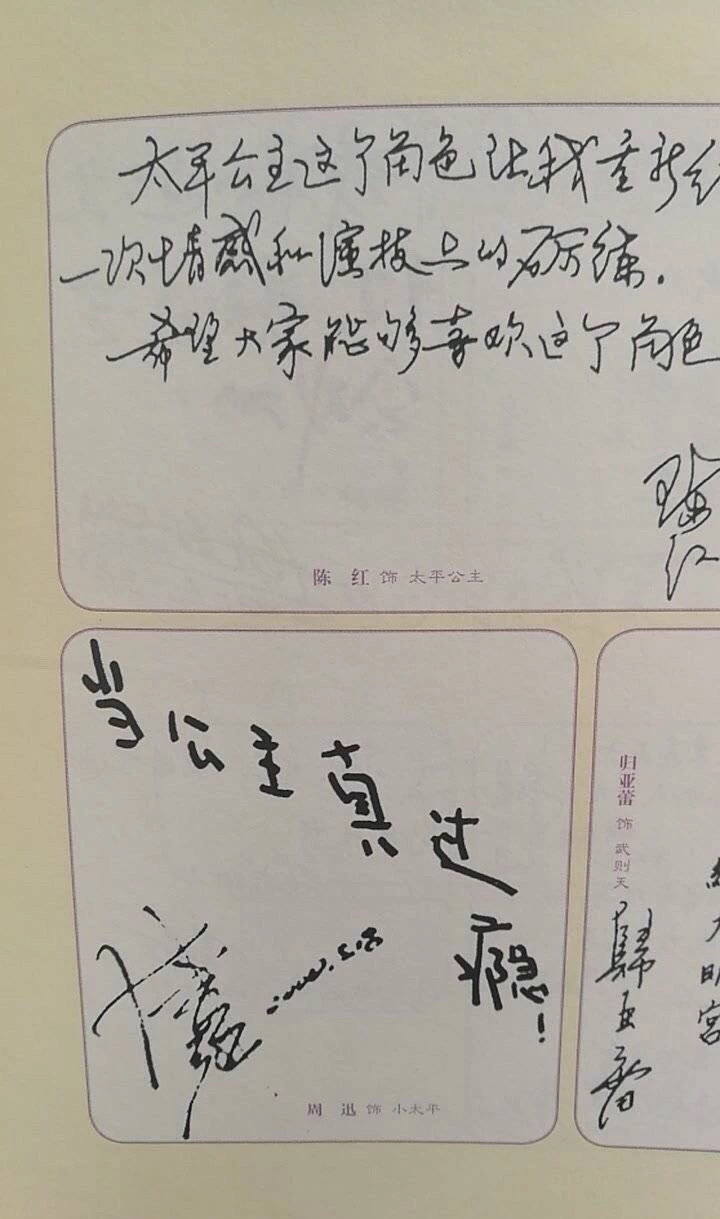 太平公主这个角色让我重新经
一次情感和演技上的砺练.
希望大家能够喜欢这个角色
陈红
陈 红 饰 太平公主
当公主真过瘾!
周迅
周 迅 饰 小太平
归亚蕾 饰 武则天
归亚蕾
大明宫